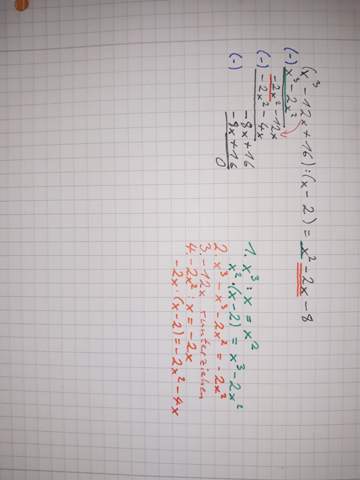 (x³ - 12x + 16) : (x - 2) = x² - 2x - 8
(-) x³ - 2x²
-2x² - 12x
(-) -2x² - 4x
-8x + 16
(-) -8x + 16
0
1. x³ : x = x²
x² · (x - 2) = x³ - 2x²
2. x³ - x³ - 2x² = -2x²
3. -12x runterziehen
4. -2x² : x = -2x
-2x · (x - 2) = -2x² - 4x